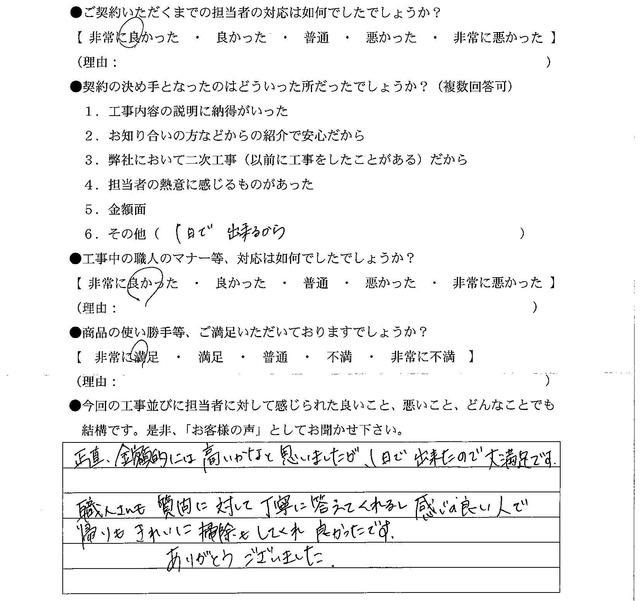 ●ご契約いただくまでの担当者の対応は如何でしたでしょうか？
【 非常に良かった ・ 良かった ・ 普通 ・ 悪かった ・ 非常に悪かった 】
（理由： ）
●契約の決め手となったのはどういった所だったでしょうか？（複数回答可）
１．工事内容の説明に納得がいった
２．お知り合いの方などからの紹介で安心だから
３．弊社において二次工事（以前に工事をしたことがある）だから
４．担当者の熱意に感じるものがあった
５．金額面
６．その他（ １日で 出来るから ）
●工事中の職人のマナー等、対応は如何でしたでしょうか？
【 非常に良かった ・ 良かった ・ 普通 ・ 悪かった ・ 非常に悪かった 】
（理由： ）
●商品の使い勝手等、ご満足いただいておりますでしょうか？
【 非常に満足 ・ 満足 ・ 普通 ・ 不満 ・ 非常に不満 】
（理由： ）
●今回の工事並びに担当者に対して感じられた良いこと、悪いこと、どんなことでも
結構です。是非、「お客様の声」としてお聞かせ下さい。
正直、金額的には高いかなと思いましたが、１日で出来たので大満足です。
職人さんも質問に対して丁寧に答えてくれるし感じの良い人で
帰りもきれいに掃除もしてくれ良かったです。
ありがとうございました。